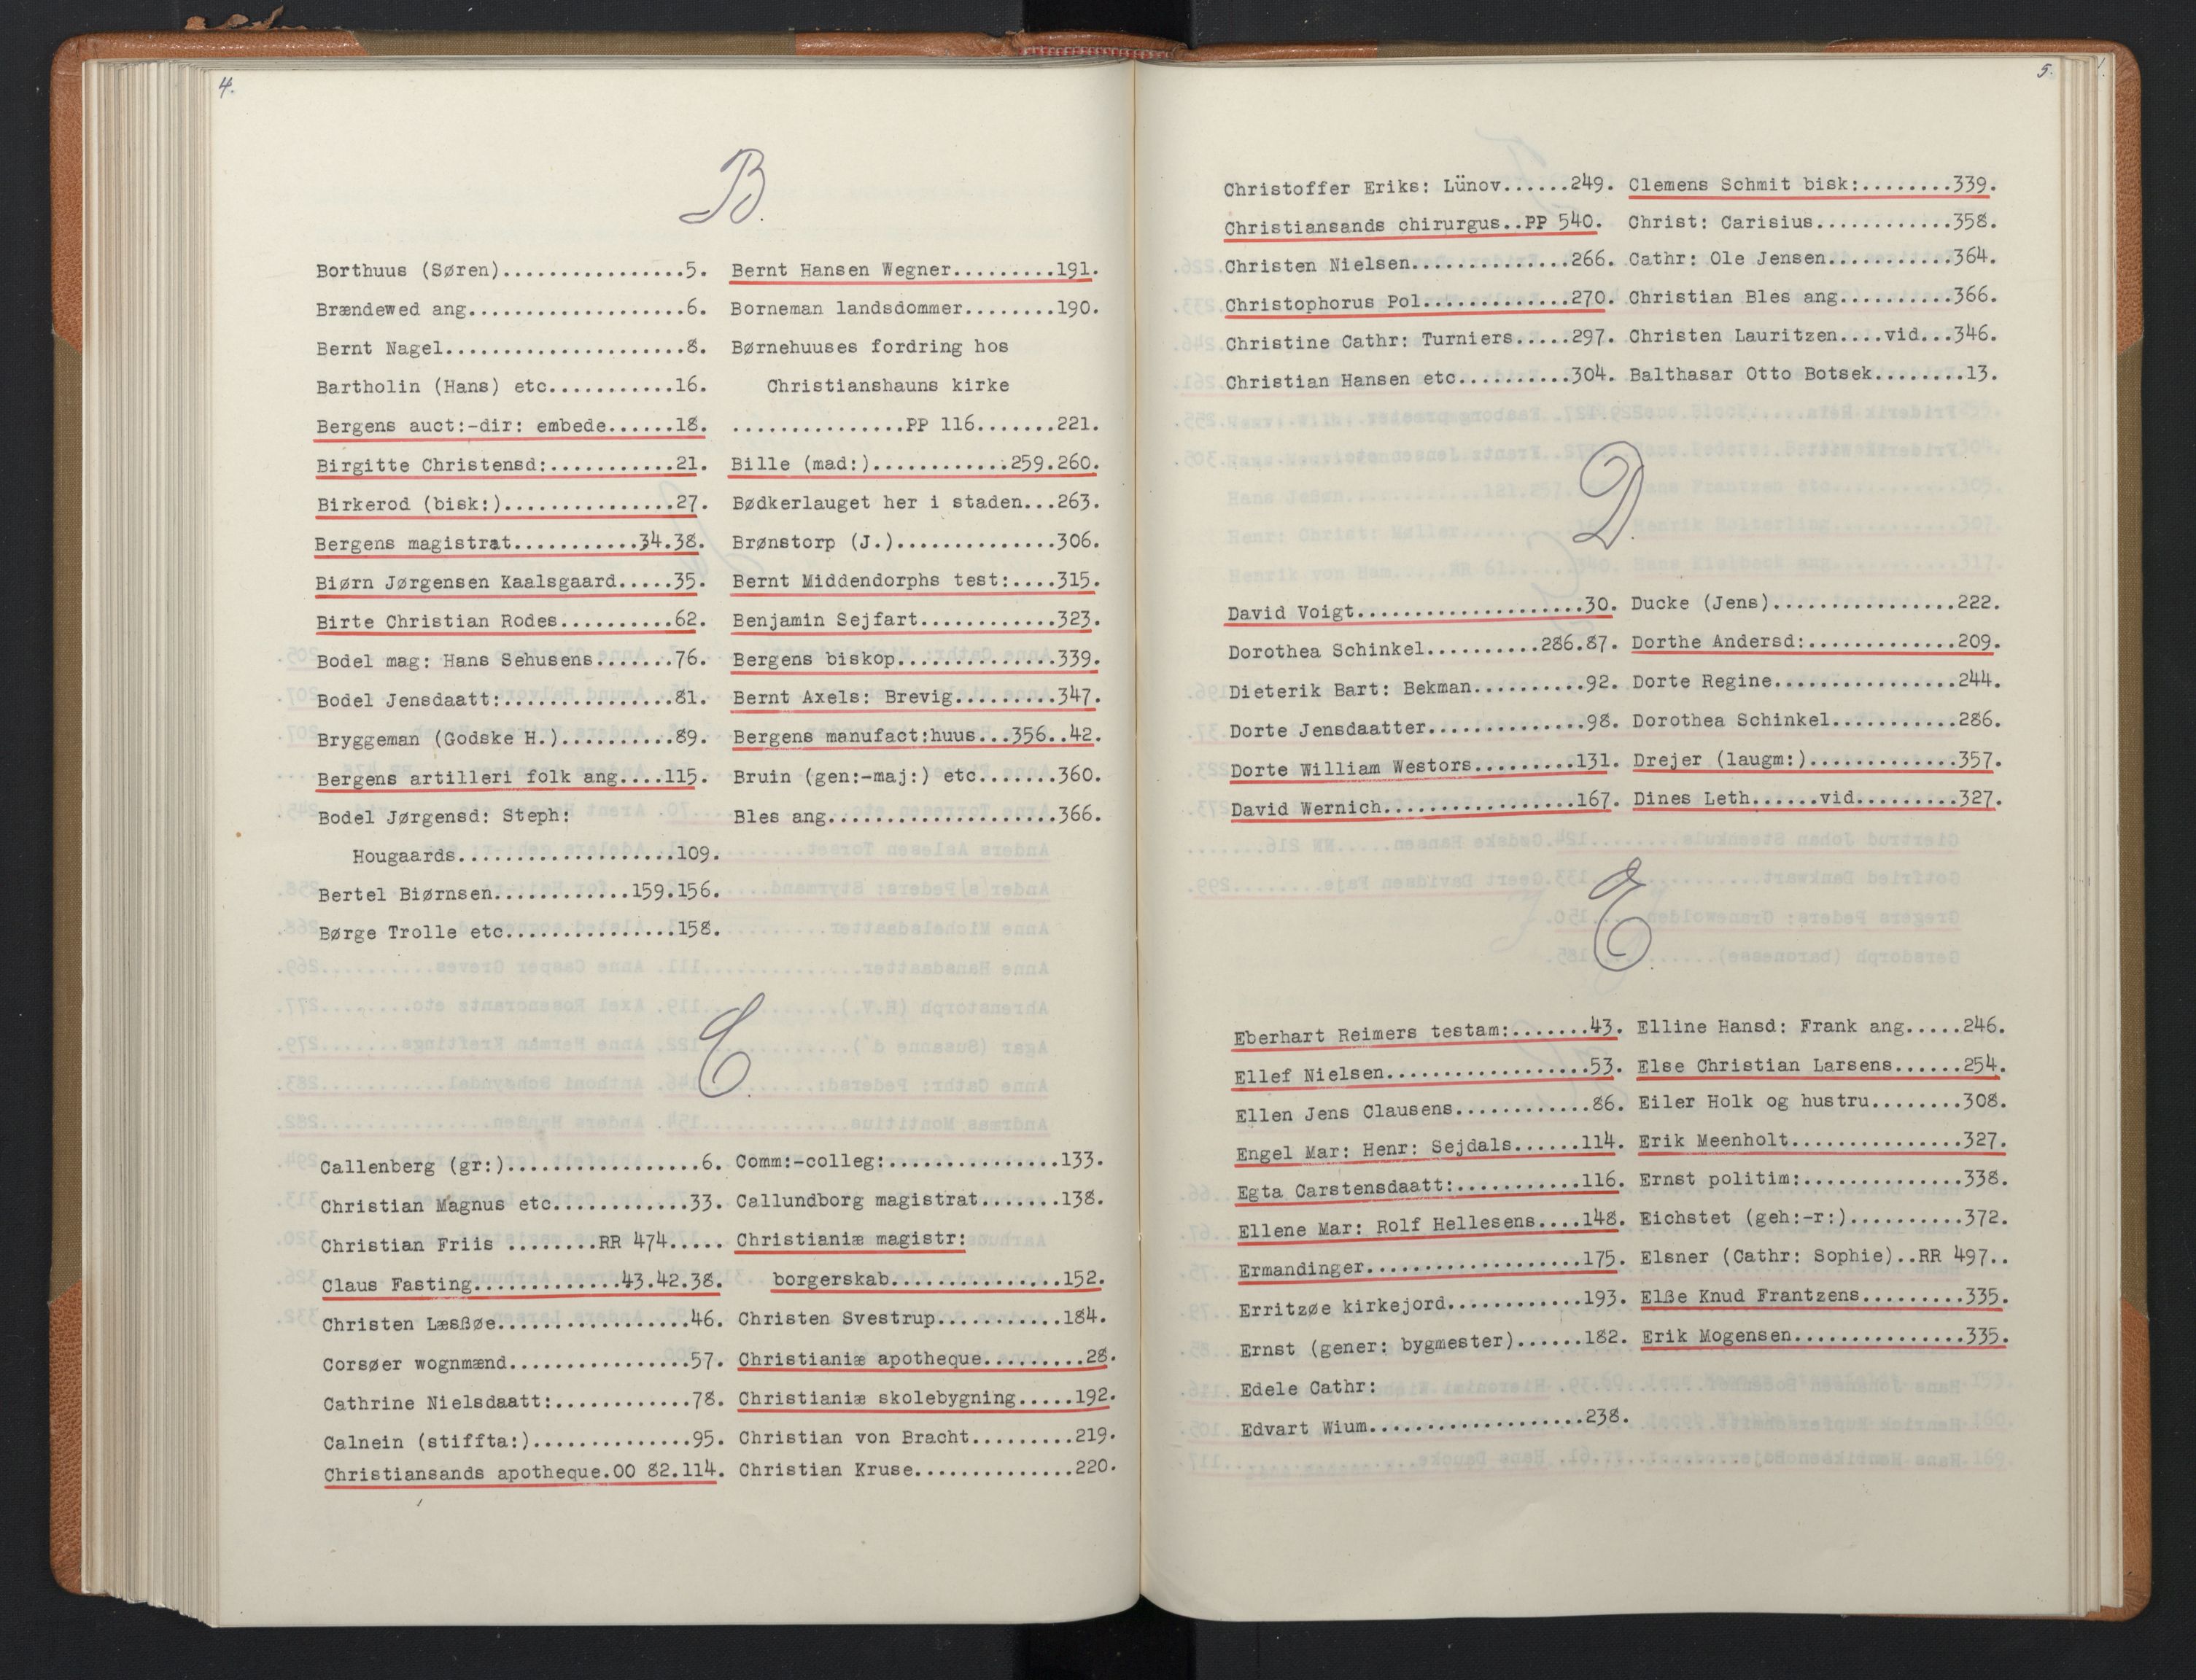 4.
B.
Borthuus (Søren)................5.
Brændewed ang...................6.
Bernt Nagel.....................8.
Bartholin (Hans) etc...........16.
Bergens auct:-dir: embede......18.
Birgitte Christensd:...........21.
Birkerod (bisk:)...............27.
Bergens magistrat...........34.38.
Biørn Jørgensen Kaalsgaard.....35.
Birte Christian Rodes..........62.
Bodel mag: Hans Sehusens.......76.
Bodel Jensdaatt:...............81.
Bryggeman (Godske H.)..........89.
Bergens artilleri folk ang....115.
Bodel Jørgensd: Steph:
Hougaards...................109.
Bertel Biørnsen............159.156.
Børge Trolle etc...............158.
Bernt Hansen Wegner.........191.
Borneman landsdommer........190.
Børnehuuses fordring hos
Christianshauns kirke
...............PP 116.......221.
Bille (mad:)............259.260.
Bødkerlauget her i staden...263.
Brønstorp (J.)..............306.
Bernt Middendorphs test:....315.
Benjamin Sejfart............323.
Bergens biskop..............339.
Bernt Axels: Brevig.........347.
Bergens manufact:huus...356..42.
Bruin (gen:-maj:) etc.......360.
Bles ang....................366.
C.
Callenberg (gr:).................6.
Christian Magnus etc............33.
Christian Friis ........RR 474.....
Claus Fasting.............43.42.38.
Christen Læsßøe.................46.
Corsøer wognmænd................57.
Cathrine Nielsdaatt:............78.
Calnein (stiffta:)..............95.
Christiansands apotheque.OO 82.114.
Comm:-colleg:...............133.
Callundborg magistrat.......138.
Christianiæ magistr:
borgerskab...............152.
Christen Svestrup...........184.
Christianiæ apotheque.........28.
Christianiæ skolebygning.....192.
Christian von Bracht.........219.
Christian Kruse..............220.
5.
Christoffer Eriks: Lünov......249.
Christiansands chirurgus..PP 540.
Christen Nielsen..............266.
Christophorus Pol.............270.
Christine Cathr: Turniers.....297.
Christian Hansen etc..........304.
Clemens Schmit bisk:........339.
Christ: Carisius............358.
Cathr: Ole Jensen...........364.
Christian Bles ang..........366.
Christen Lauritzen....vid...346.
Balthasar Otto Botsek........13.
D.
David Voigt....................30.
Dorothea Schinkel..........286.87.
Dieterik Bart: Bekman..........92.
Dorte Jensdaatter..............98.
Dorte William Westors.........131.
David Wernich.................167.
Ducke (Jens)................222.
Dorthe Andersd:.............209.
Dorte Regine................244.
Dorothea Schinkel...........286.
Drejer (laugm:).............357.
Dines Leth......vid.........327.
E.
Eberhart Reimers testam:.......43.
Ellef Nielsen..................53.
Ellen Jens Clausens............86.
Engel Mar: Henr: Sejdals......114.
Egta Carstensdaatt:...........116.
Ellene Mar: Rolf Hellesens....148.
Ermandinger...................175.
Erritzøe kirkejord............193.
Ernst (gener: bygmester)......182.
Edele Cathr:
Edvart Wium...................238.
Elline Hansd: Frank ang.....246.
Else Christian Larsens......254.
Eiler Holk og hustru........308.
Erik Meenholt...............327.
Ernst politim:..............338.
Eichstet (geh:-r:)..........372.
Elsner (Cathr: Sophie)..RR 497..
Elße Knud Frantzens.........335.
Erik Mogensen...............335.